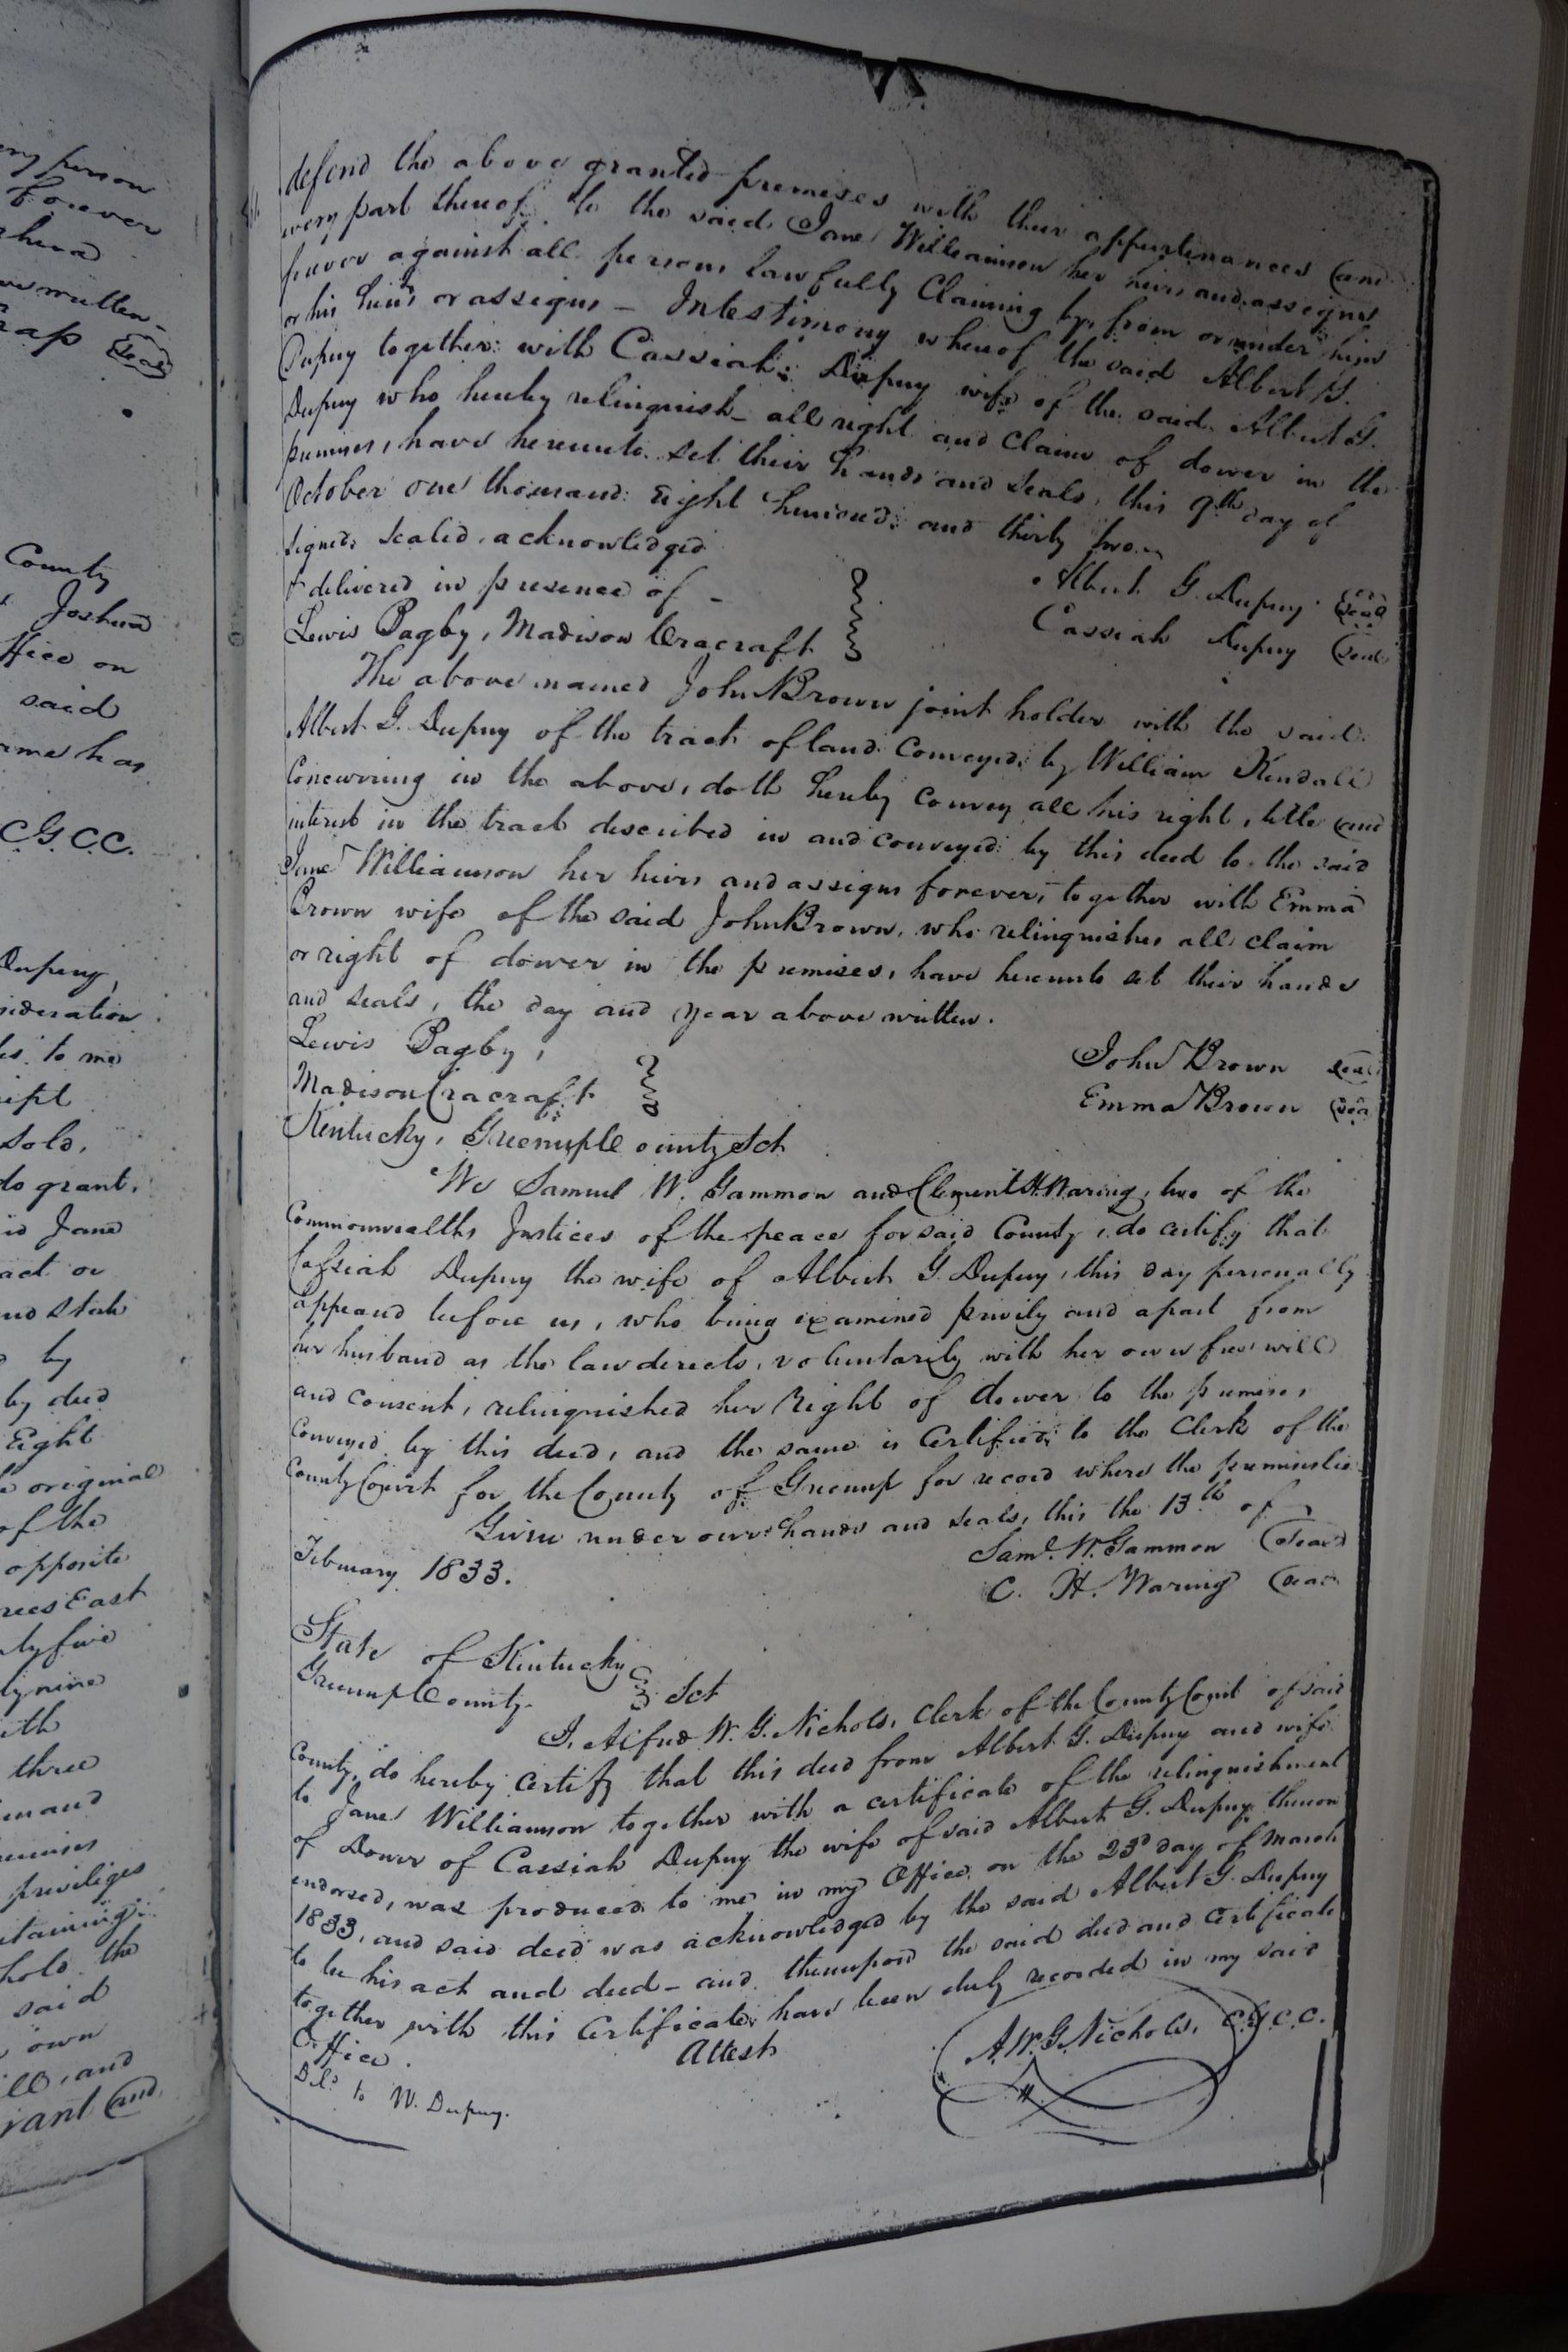 ery person
forever
County
Joshua
ffice on
said
ame has
C.G.C.C.
Dupuy,
sideration
to me
Sold,
do grant,
Jane
act or
by
by deed
Eight
original
of the
opposite
rees East
ty five
ty nine
three
privileges
hold the
said
own
and
rant and
defend the above granted premises with their appurtenances and
every part thereof to the said Jane Williamson her heirs and assigns
forever against all persons lawfully Claiming by, from or under him
or his heirs or assigns – In testimony whereof the said Albert G.
Dupuy together with Cassiah Dupuy wife of the said Albert G.
Dupuy who hereby relinquish all right and claim of dower in the
premises, have hereunto set their hands and seals, this 9th day of
October one thousand eight hundred and thirty two.
Signed, sealed, acknowledged
& delivered in presence of –
Albert G. Dupuy Seal
Lewis Bagby, Madison Cracraft
Cassiah Dupuy Seal
The above named John Brown joint holder with the said
Albert G. Dupuy of the tract of land Conveyed by William Kendall
Concurring in the above, doth hereby convey all his right, title and
interest in the tract described in and conveyed by this deed to the said
Jane Williamson her heirs and assigns forever, together with Emma
Brown wife of the said John Brown, who relinquishes all claim
or right of dower in the premises, have hereunto set their hands
and seals, the day and year above written.
Lewis Bagby,
John Brown seal
Madison Cracraft
Emma Brown Sea
Kentucky, Greenup County Sct
We Samuel W. Gammon and Clement H. Waring, two of the
Commonwealths Justices of the peace for said County, do certify that
Cassiah Dupuy the wife of Albert G. Dupuy, this day personally
appeared before us, who being examined privily and apart from
her husband as the law directs, voluntarily with her own free will
and consent, relinquished her Right of dower to the premises,
Conveyed by this deed, and the same is Certified to the Clerk of the
County Court for the County of Greenup for record where the premises lie
Given under our hands and seals, this the 13th of
February 1833.
Saml. W. Gammon Seal
C. H. Waring Seal
State of Kentucky
Greenup County Sct
I, Alfred W. G. Nichols, Clerk of the County Court of said
County, do hereby certify that this deed from Albert G. Dupuy and wife
to Jane Williamson together with a certificate of the relinquishment
of Dower of Cassiah Dupuy the wife of said Albert G. Dupuy thereon
endorsed, was produced to me in my Office on the 23d day of March
1833, and said deed was acknowledged by the said Albert G. Dupuy
to be his act and deed – and thereupon the said deed and Certificate
together with this Certificate, have been duly recorded in my said
Office.
Attest
A. W. G. Nichols, C.G.C.C.
Dld. to W. Dupuy.